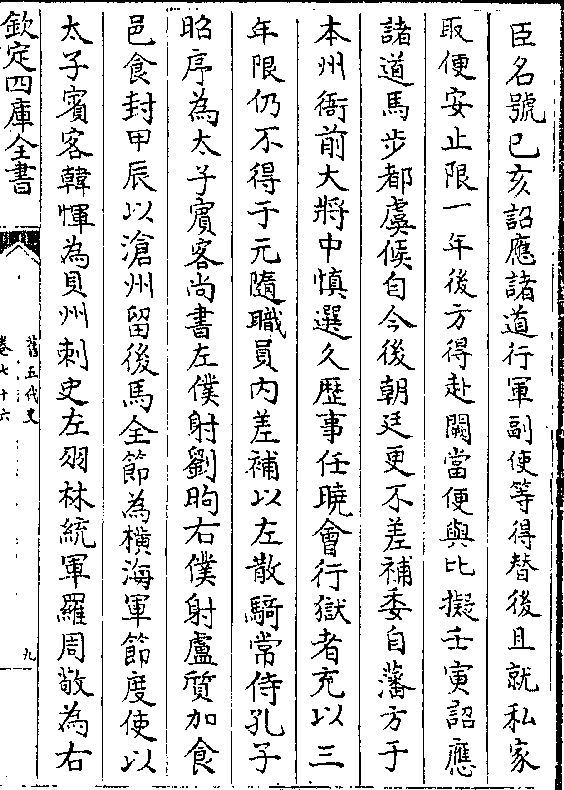 臣名號已亥詔應諸道行軍副使等得替後且就私家
取便安止限一年後方得赴闕當便與比擬壬寅詔應
諸道馬步都虞候自今後朝廷更不差補委自藩方于
本州衙前大將中慎選久歷事任曉會行獄者充以三
年限仍不得于元隨職員內差補以左散騎常侍孔子
昭序為太子賓客尚書左僕射劉昫右僕射盧質加食
邑食封甲辰以滄州留後馬全節為橫海軍節度使以
太子賓客韓惲為貝州刺史左羽林統軍羅周敬為右
欽定四庫全書
舊五代史
卷七十六
九